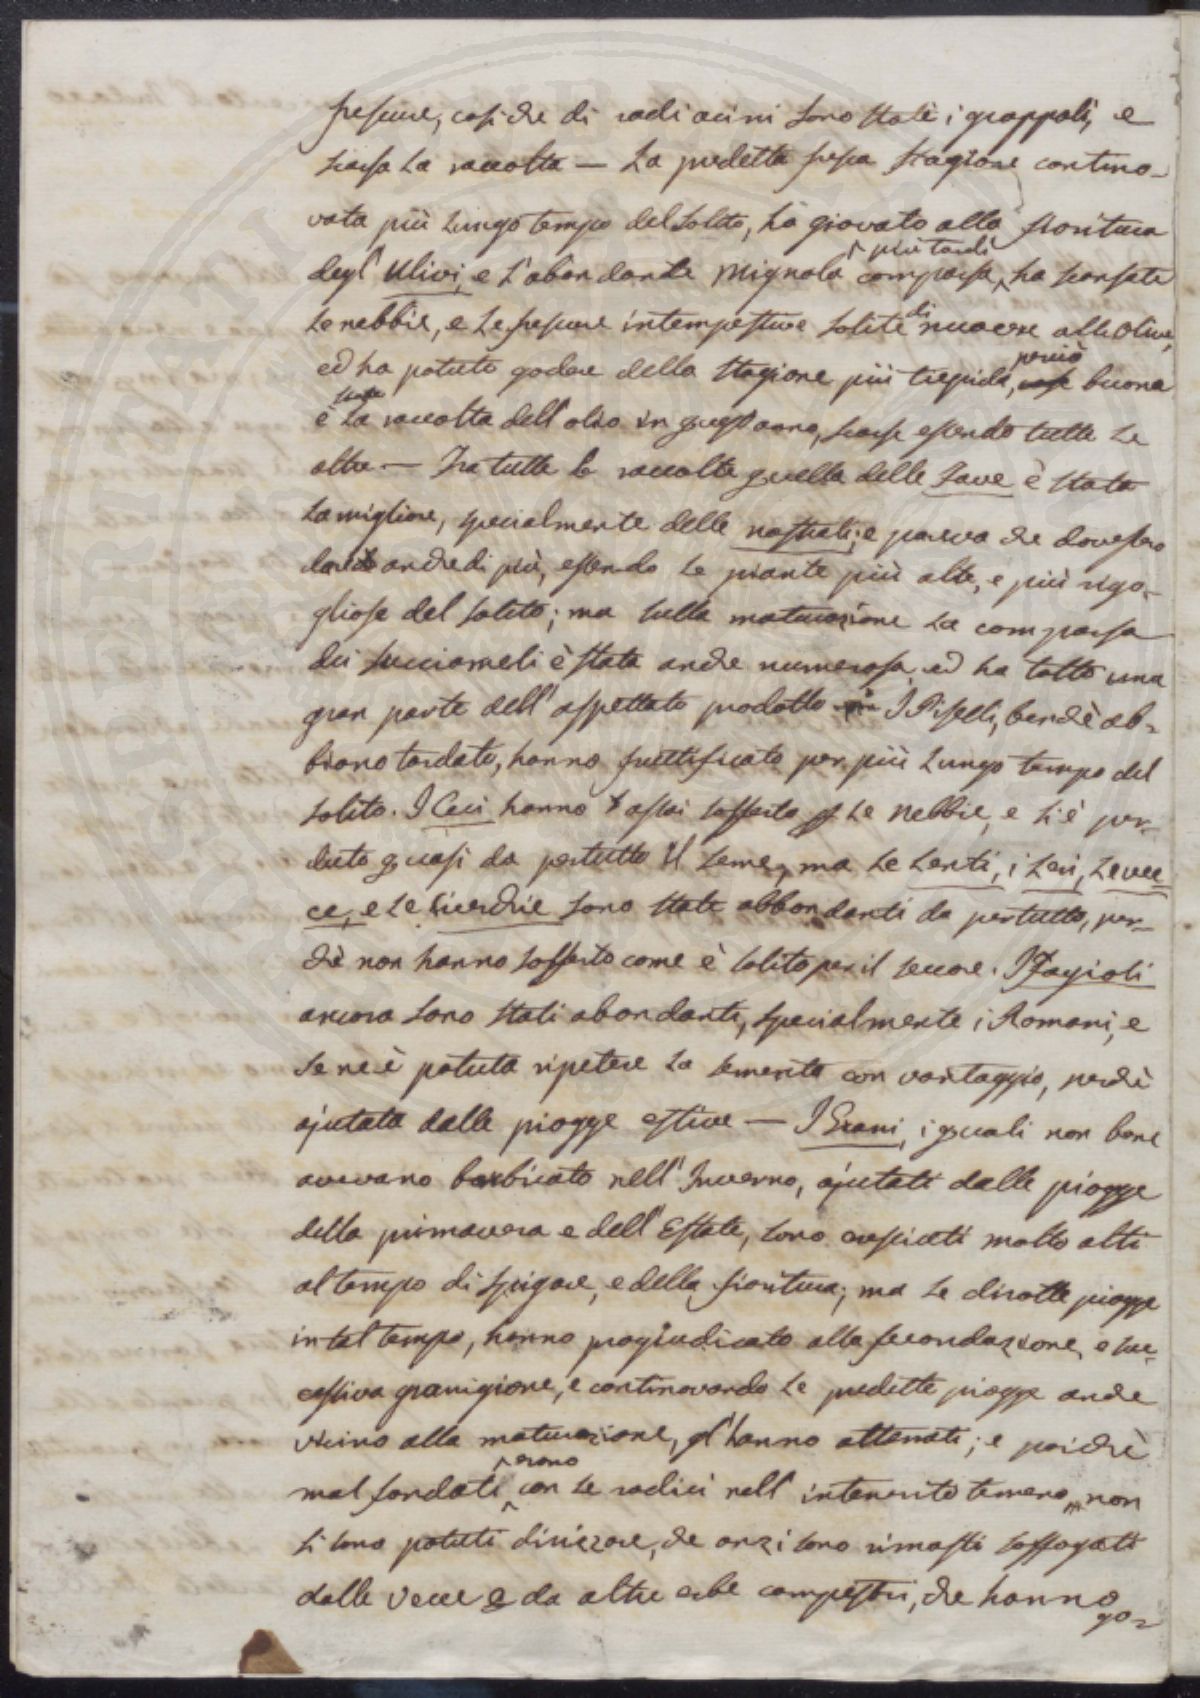 frescure, cosiche di radi acini sono stati i grappoli, e
scarsa la raccolta — La predetta fresca stagione contino-
vata più lungo tempo del solito, ha giovato alla fioritura
degl' Ulivi, e l'abondante Mignola comparsa più tardi, ha scansate
le nebbie, e le frescure intempestive solite di nuocere alle Olive,
ed ha potuto godere della stagione più tiepida, perciò buona
è stata la raccolta dell'olio in quest'anno, scarse essendo tutte le
altre — Tra tutte le raccolte quella delle Fave è stata
la migliore, specialmente delle nostrali; e pareva che dovessero
dare anche di più, essendo le piante più alte, e più rigo-
gliose del solito; ma sulla maturazione la comparsa
dei succiameli è stata anche numerosa, ed ha tolto una
gran parte dell'aspettato prodotto I Piselli, benchè ab-
biano tardato, hanno fruttificato per più lungo tempo del
solito. I Ceci hanno assai sofferto p le nebbie, e si è per-
duto quasi da pertutto il seme, ma le Lenti, i Leri, le vec-
ce, e le Cicerchie sono state abbondanti da pertutto, per-
chè non hanno sofferto come è solito per il seccore. I Fagioli
ancora sono stati abondanti, specialmente i Romani, e
se ne è potuta ripetere la sementa con vantaggio, perchè
ajutata dalle piogge estive — I Grani, i quali non bene
avevano barbicato nell'Inverno, ajutati dalle piogge
della primavera e dell'Estate, sono cresciuti molto alti
al tempo di spigare, e della fioritura; ma le dirotte piogge
in tal tempo, hanno progiudicato alla fecondazione, e suc-
cessiva granigione, e continovando le predette piogge anche
vicino alla maturazione, gl'hanno atterrati; e poichè
mal fondati erano con le radici nell'intenerito terreno, non
si sono potuti dirizzare, che anzi sono rimasti soffogati
dalle Vecce e da altre erbe campestri, che hanno
go-